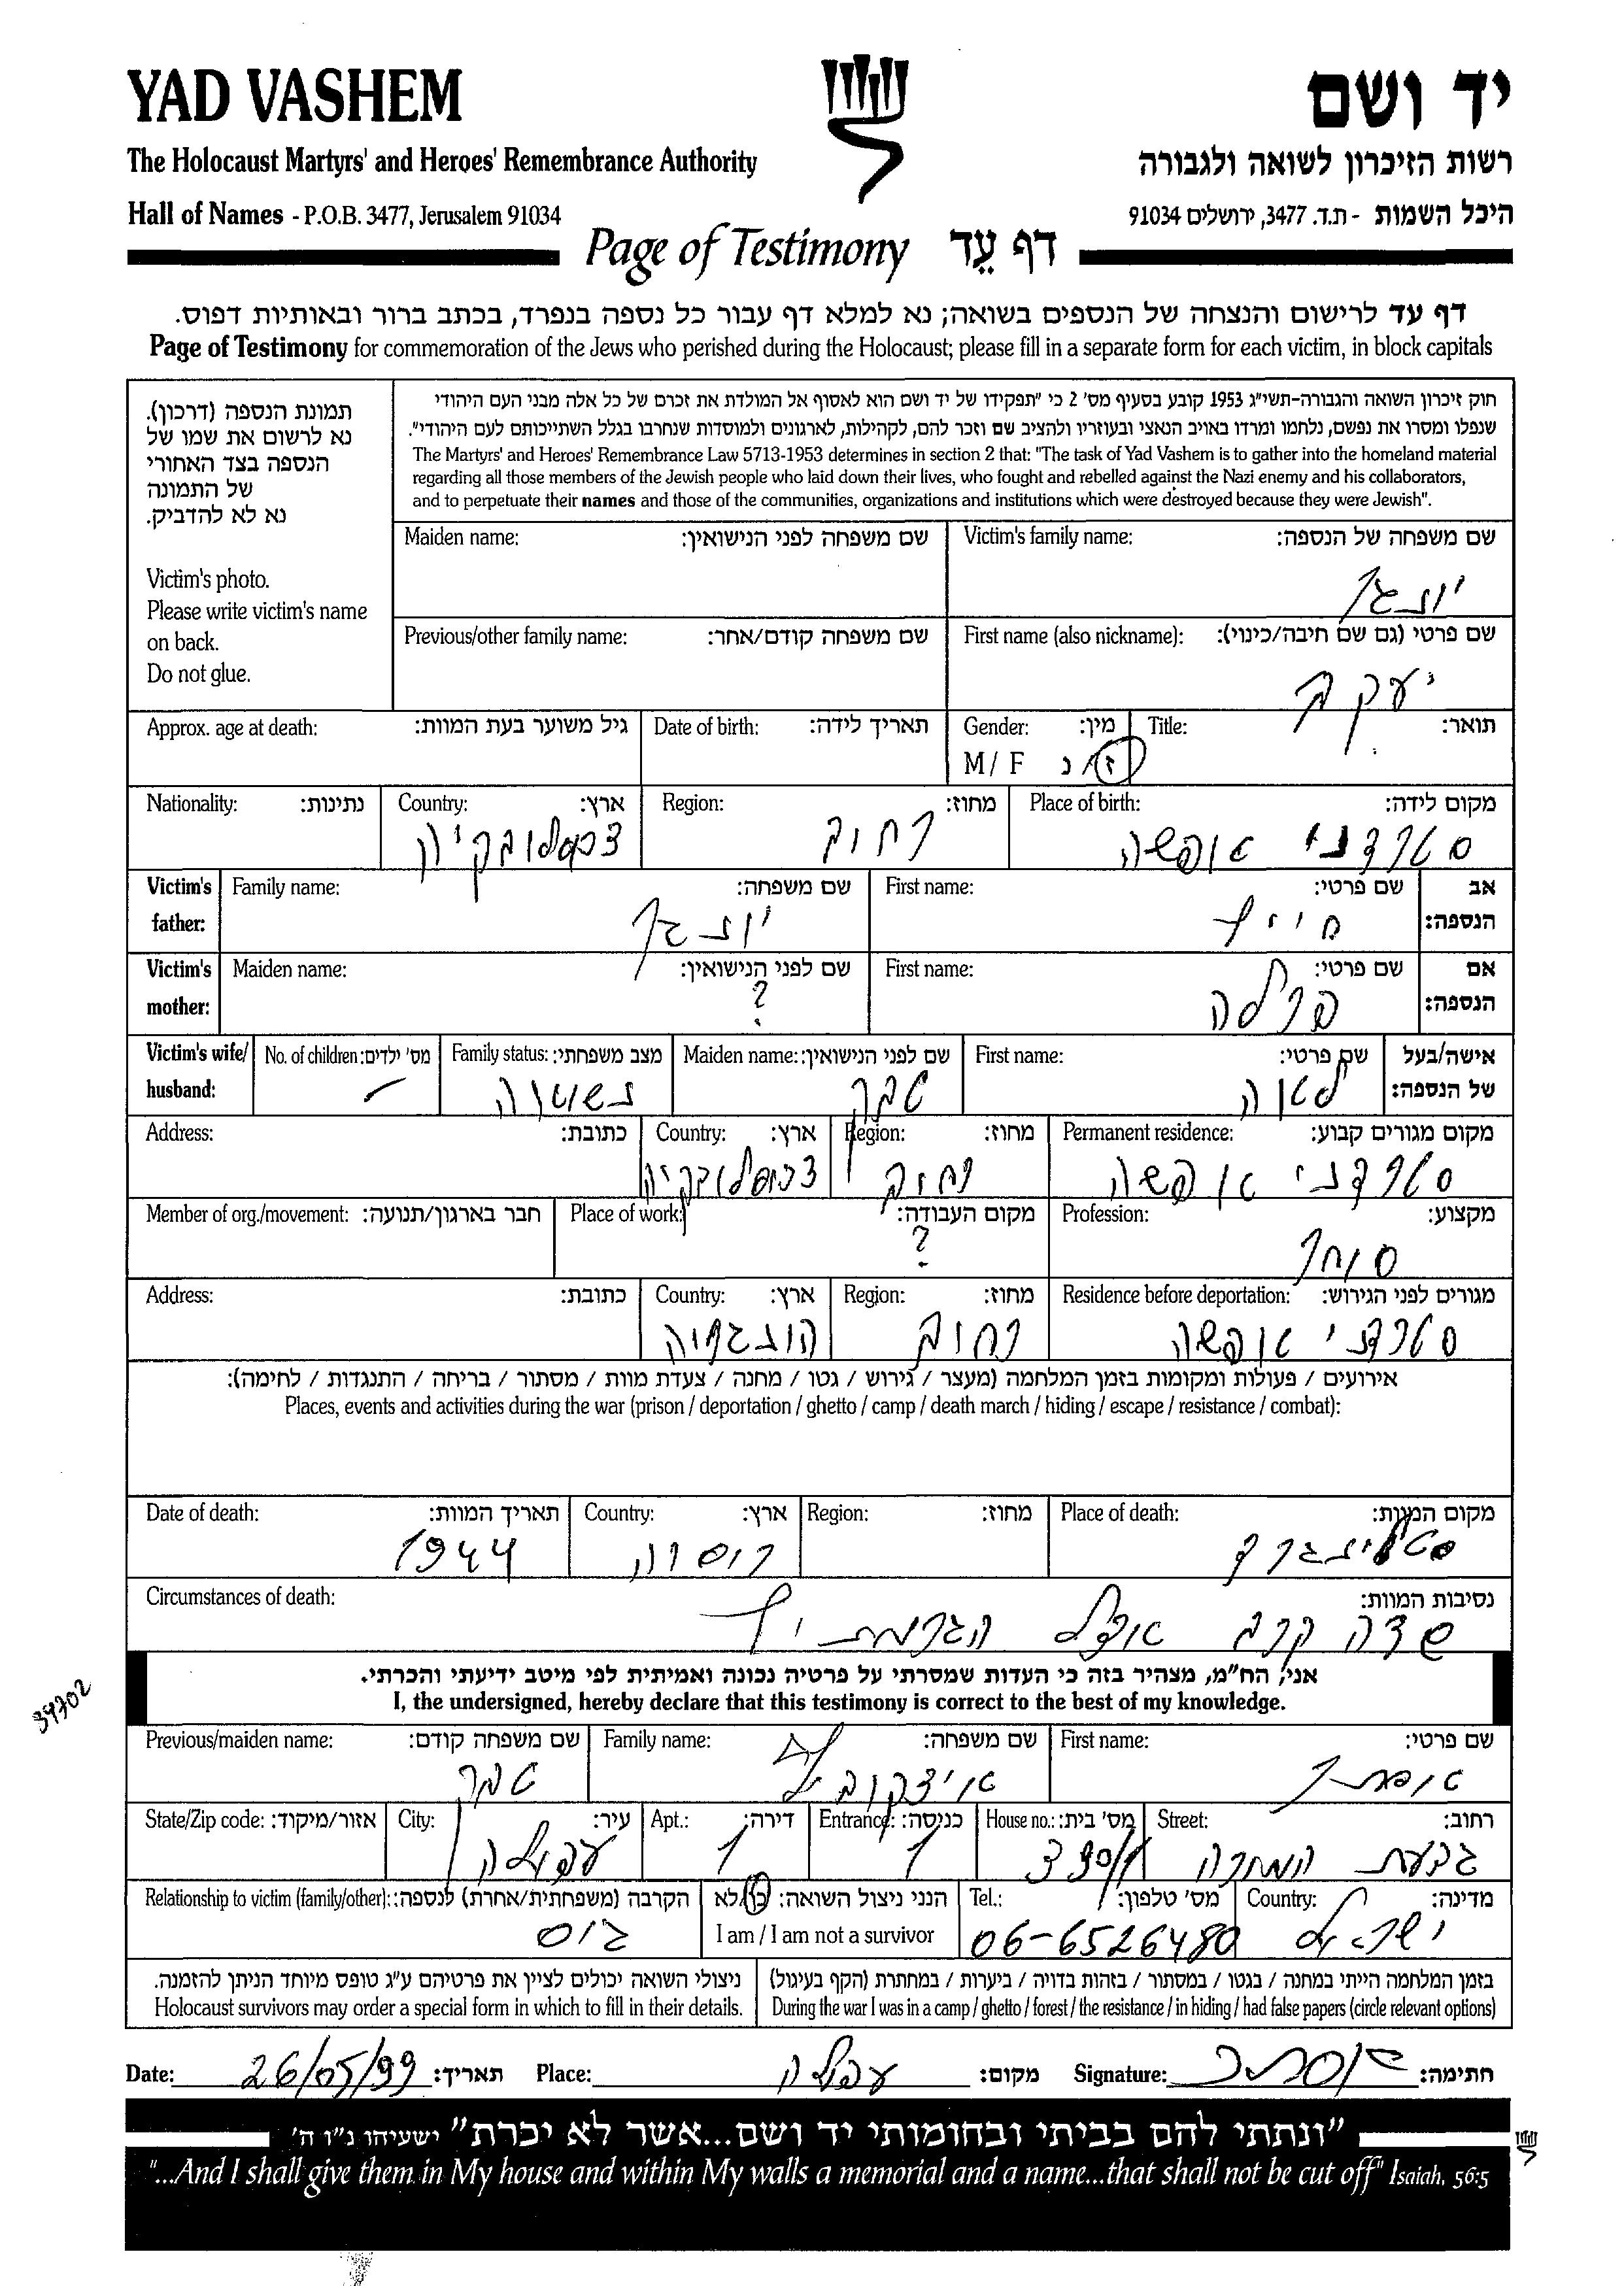 YAD VASHEM
יד ושם
The Holocaust Martyrs' and Heroes' Remembrance Authority
רשות הזיכרון לשואה ולגבורה
Hall of Names - P.O.B. 3477, Jerusalem 91034
היכל השמות - ת.ד. 3477, ירושלים 91034
Page of Testimony דף עֵד
דף עד לרישום והנצחה של הנספים בשואה; נא למלא דף עבור כל נספה בנפרד, בכתב ברור ובאותיות דפוס.
Page of Testimony for commemoration of the Jews who perished during the Holocaust; please fill in a separate form for each victim, in block capitals
תמונת הנספה (דרכון).
נא לרשום את שמו של
הנספה בצד האחורי
של התמונה
נא לא להדביק.
Victim's photo.
Please write victim's name
on back.
Do not glue.
חוק זיכרון השואה והגבורה-תשי"ג 1953 קובע בסעיף מס' 2 כי "תפקידו של יד ושם הוא לאסוף אל המולדת את זכרם של כל אלה מבני העם היהודי
שנפלו ומסרו את נפשם, נלחמו ומרדו באויב הנאצי ובעוזריו ולהציב שם וזכר להם, לקהילות, לארגונים ולמוסדות שנחרבו בגלל השתייכותם לעם היהודי".
The Martyrs' and Heroes' Remembrance Law 5713-1953 determines in section 2 that: "The task of Yad Vashem is to gather into the homeland material
regarding all those members of the Jewish people who laid down their lives, who fought and rebelled against the Nazi enemy and his collaborators,
and to perpetuate their names and those of the communities, organizations and institutions which were destroyed because they were Jewish".
Victim's family name: שם משפחה של הנספה:
יונגר
Maiden name: שם משפחה לפני הנישואין:
First name (also nickname): שם פרטי (גם שם חיבה/כינוי):
יעקב
Previous/other family name: שם משפחה קודם/אחר:
Title: תואר:
Gender: מין:
M / F ז/נ
Date of birth: תאריך לידה:
Approx. age at death: גיל משוער בעת המוות:
Place of birth: מקום לידה:
סטרדני אופשה
Region: מחוז:
רחוב
Country: ארץ:
צכסלובקיה
Nationality: נתינות:
Victim's father: אב הנספה:
First name: שם פרטי:
חיים
Family name: שם משפחה:
יונגר
Victim's mother: אם הנספה:
First name: שם פרטי:
פרלה
Maiden name: שם לפני הנישואין:
?
Victim's wife/husband: אישה/בעל של הנספה:
First name: שם פרטי:
לאה
Maiden name: שם לפני הנישואין:
Family status: מצב משפחתי:
נשואה
No. of children: מס' ילדים:
Permanent residence: מקום מגורים קבוע:
סטרדני אופשה
Region: מחוז:
רחוב
Country: ארץ:
צכוסלובקיה
Address: כתובת:
Profession: מקצוע:
סוחר
Place of work: מקום העבודה:
?
Member of org./movement: חבר בארגון/תנועה:
Residence before deportation: מגורים לפני הגירוש:
סטרדני אופשה
Region: מחוז:
רחוב
Country: ארץ:
הונגריה
Address: כתובת:
אירועים / פעולות ומקומות בזמן המלחמה (מעצר / גירוש / גטו / מחנה / צעדת מוות / מסתור / בריחה / התנגדות / לחימה):
Places, events and activities during the war (prison / deportation / ghetto / camp / death march / hiding / escape / resistance / combat):
Place of death: מקום המוות:
סטלינגרד
Region: מחוז:
Country: ארץ:
רוסיה
Date of death: תאריך המוות:
1944
Circumstances of death: נסיבות המוות:
שדה קרב אצל הגרמנים
אני, הח"מ, מצהיר בזה כי העדות שמסרתי על פרטיה נכונה ואמיתית לפי מיטב ידיעתי והכרתי.
I, the undersigned, hereby declare that this testimony is correct to the best of my knowledge.
39702
First name: שם פרטי:
אסתר
Family name: שם משפחה:
איצקוביץ
Previous/maiden name: שם משפחה קודם:
Street: רחוב:
גבעת המורה
House no.: מס' בית:
330/1
Entrance: כניסה:
1
Apt.: דירה:
1
City: עיר:
עפולה
State/Zip code: אזור/מיקוד:
Country: מדינה:
ישראל
Tel.: מס' טלפון:
06-6526480
הנני ניצול השואה: כן/לא
I am / I am not a survivor
Relationship to victim (family/other): הקרבה (משפחתית/אחרת) לנספה:
גיס
בזמן המלחמה הייתי במחנה / בגטו / במסתור / בזהות בדויה / ביערות / במחתרת (הקף בעיגול)
During the war I was in a camp / ghetto / forest / the resistance / in hiding / had false papers (circle relevant options)
ניצולי השואה יכולים לציין את פרטיהם ע"ג טופס מיוחד הניתן להזמנה.
Holocaust survivors may order a special form in which to fill in their details.
Date: 26/05/99 תאריך: Place: עפולה מקום: Signature: חתימה:
"ונתתי להם בביתי ובחומותי יד ושם...אשר לא יכרת" ישעיהו נ"ו ה'
"...And I shall give them in My house and within My walls a memorial and a name...that shall not be cut off" Isaiah, 56:5